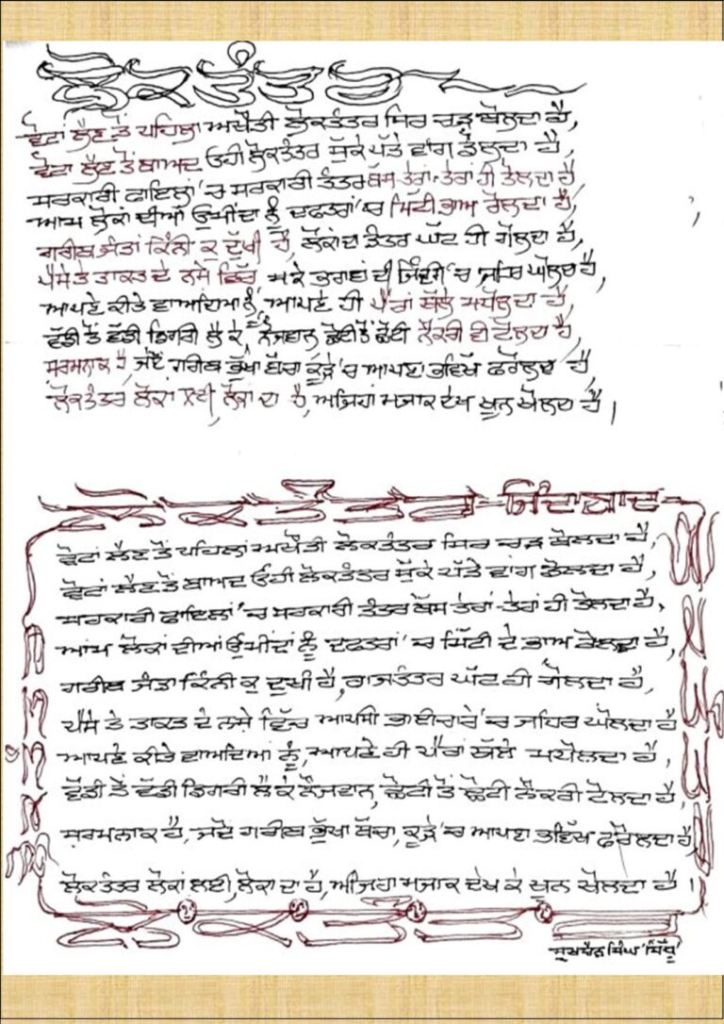 ਲੋਕਤੰਤਰ
ਵੋਟਾਂ ਲੈਣ ਤੋਂ ਪਹਿਲਾਂ ਅਖੌਤੀ ਲੋਕਤੰਤਰ ਸਿਰ ਚੜ੍ਹ ਬੋਲਦਾ ਹੈ,
ਵੋਟਾਂ ਲੈਣ ਤੋਂ ਬਾਅਦ ਓਹੀ ਲੋਕਤੰਤਰ ਸੁੱਕੇ ਪੱਤੇ ਵਾਂਗ ਡੋਲਦਾ ਹੈ,
ਸਰਕਾਰੀ ਫਾਇਲਾਂ 'ਚ ਸਰਕਾਰੀ ਤੰਤਰ ਬੱਸ ਤੇਰਾਂ-ਤੇਰਾਂ ਹੀ ਤੋਲਦਾ ਹੈ,
ਆਮ ਲੋਕਾਂ ਦੀਆਂ ਉਮੀਦਾਂ ਨੂੰ ਦਫਤਰਾਂ 'ਚ ਮਿੱਟੀ ਭਾਅ ਰੋਲਦਾ ਹੈ,
ਗਰੀਬ ਜੰਤਾ ਕਿੰਨੀ ਕੁ ਦੁੱਖੀ ਹੈ, ਲੋਕਾਂ ਦਾ ਤੰਤਰ ਘੱਟ ਹੀ ਗੌਲਦਾ ਹੈ,
ਪੈਸੇ ਤੇ ਤਾਕਤ ਦੇ ਨਸ਼ੇ ਵਿੱਚ ਸਕੇ ਭਰਾਵਾਂ ਦੀ ਜ਼ਿੰਦਗੀ 'ਚ ਜਹਿਰ ਘੋਲਦਾ ਹੈ,
ਆਪਣੇ ਕੀਤੇ ਵਾਅਦਿਆਂ ਨੂੰ, ਆਪਣੇ ਹੀ ਪੈਰਾਂ ਥੱਲੇ ਮਧੋਲਦਾ ਹੈ,
ਵੱਡੀ ਤੋਂ ਵੱਡੀ ਡਿਗਰੀ ਲੈ ਕੇ, ਨੌਜਵਾਨ ਛੋਟੀ ਤੋਂ ਛੋਟੀ ਨੌਕਰੀ ਵੀ ਟੋਲਦਾ ਹੈ,
ਸ਼ਰਮਨਾਕ ਹੈ, ਜਦੋਂ ਗਰੀਬ ਭੁੱਖਾ ਬੱਚਾ ਕੂੜੇ 'ਚ ਆਪਣਾ ਭਵਿੱਖ ਫਰੋਲਦਾ ਹੈ,
ਲੋਕਤੰਤਰ ਲੋਕਾਂ ਲਈ, ਲੋਕਾਂ ਦਾ ਹੈ, ਅਜਿਹਾ ਮਜਾਕ ਦੇਖ ਖੂਨ ਖੌਲਦਾ ਹੈ।
ਲੋਕਤੰਤਰ ਜਿੰਦਾਬਾਦ
ਵੋਟਾਂ ਲੈਣ ਤੋਂ ਪਹਿਲਾਂ ਅਖੌਤੀ ਲੋਕਤੰਤਰ ਸਿਰ ਚੜ੍ਹ ਬੋਲਦਾ ਹੈ,
ਵੋਟਾਂ ਲੈਣ ਤੋਂ ਬਾਅਦ ਓਹੀ ਲੋਕਤੰਤਰ ਸੁੱਕੇ ਪੱਤੇ ਵਾਂਗ ਡੋਲਦਾ ਹੈ,
ਸਰਕਾਰੀ ਫਾਇਲਾਂ 'ਚ ਸਰਕਾਰੀ ਤੰਤਰ ਬੱਸ ਤੇਰਾਂ-ਤੇਰਾਂ ਹੀ ਤੋਲਦਾ ਹੈ,
ਆਮ ਲੋਕਾਂ ਦੀਆਂ ਉਮੀਦਾਂ ਨੂੰ ਦਫਤਰਾਂ 'ਚ ਮਿੱਟੀ ਦੇ ਭਾਅ ਰੋਲਦਾ ਹੈ,
ਗਰੀਬ ਜੰਤਾ ਕਿੰਨੀ ਕੁ ਦੁਖੀ ਹੈ, ਰਾਜਤੰਤਰ ਘੱਟ ਹੀ ਗੌਲਦਾ ਹੈ,
ਪੈਸੇ ਤੇ ਤਾਕਤ ਦੇ ਨਸ਼ੇ ਵਿੱਚ ਆਪਸੀ ਭਾਈਚਾਰੇ 'ਚ ਜਹਿਰ ਘੋਲਦਾ ਹੈ
ਆਪਣੇ ਕੀਤੇ ਵਾਅਦਿਆਂ ਨੂੰ, ਆਪਣੇ ਹੀ ਪੈਰਾਂ ਥੱਲੇ ਮਧੋਲਦਾ ਹੈ,
ਵੱਡੀ ਤੋਂ ਵੱਡੀ ਡਿਗਰੀ ਲੈ ਕੇ ਨੌਜਵਾਨ, ਛੋਟੀ ਤੋਂ ਛੋਟੀ ਨੌਕਰੀ ਟੋਲਦਾ ਹੈ,
ਸ਼ਰਮਨਾਕ ਹੈ, ਜਦੋਂ ਗਰੀਬ ਭੁੱਖਾ ਬੱਚਾ, ਕੂੜੇ 'ਚ ਆਪਣਾ ਭਵਿੱਖ ਫਰੋਲਦਾ ਹੈ,
ਲੋਕਤੰਤਰ ਲੋਕਾਂ ਲਈ, ਲੋਕਾਂ ਦਾ ਹੈ, ਅਜਿਹਾ ਮਜਾਕ ਦੇਖ ਕੇ ਖੂਨ ਖੌਲਦਾ ਹੈ।
ਸੁਖਚੈਨ ਸਿੰਘ 'ਸਿੱਧੂ'